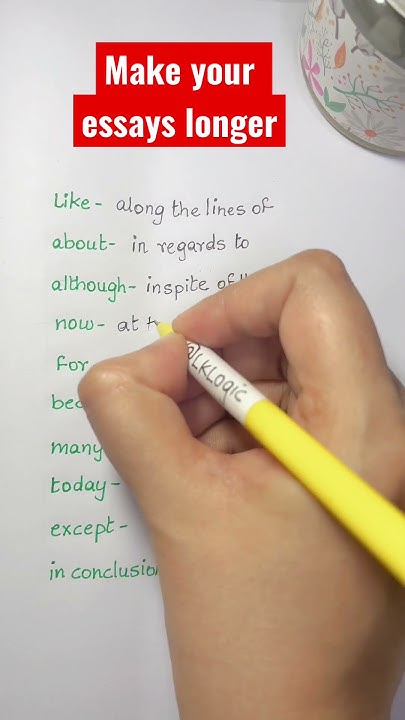 Make your
essays longer
Like - along the lines of
about - in regards to
although - inspite of
now - at
for
many
today -
except -
in conclusion
@LKLogic